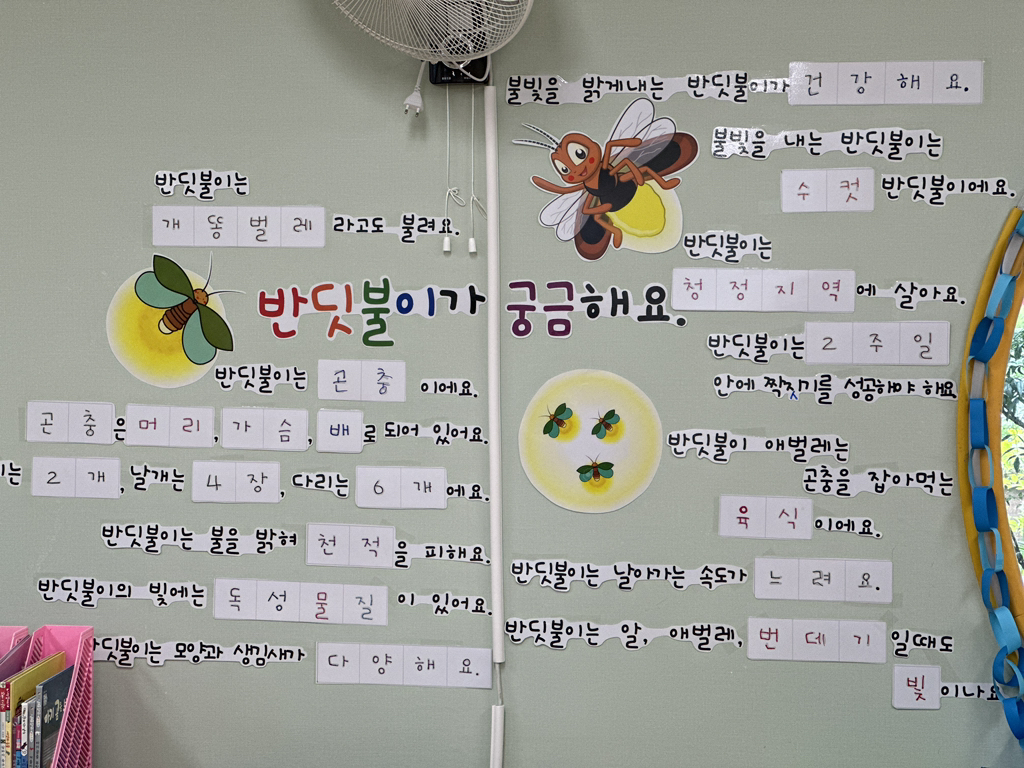 반딧불이는
개똥벌레라고도 불려요.
반딧불이가 궁금해요.
반딧불이는 곤충이에요.
곤충은 머리, 가슴, 배로 되어 있어요.
는 2개, 날개는 4장, 다리는 6개에요.
반딧불이는 불을 밝혀 천적을 피해요.
반딧불이의 빛에는 독성물질이 있어요.
반딧불이는 모양과 생김새가 다양해요.
불빛을 밝게내는 반딧불이가 건강해요.
불빛을 내는 반딧불이는
수컷 반딧불이에요.
반딧불이는
청정지역에 살아요.
반딧불이는 2주일
안에 짝짓기를 성공해야 해요
반딧불이 애벌레는
곤충을 잡아먹는
육식이에요.
반딧불이는 날아가는 속도가 느려요.
반딧불이는 알, 애벌레, 번데기 일때도
빛이나요